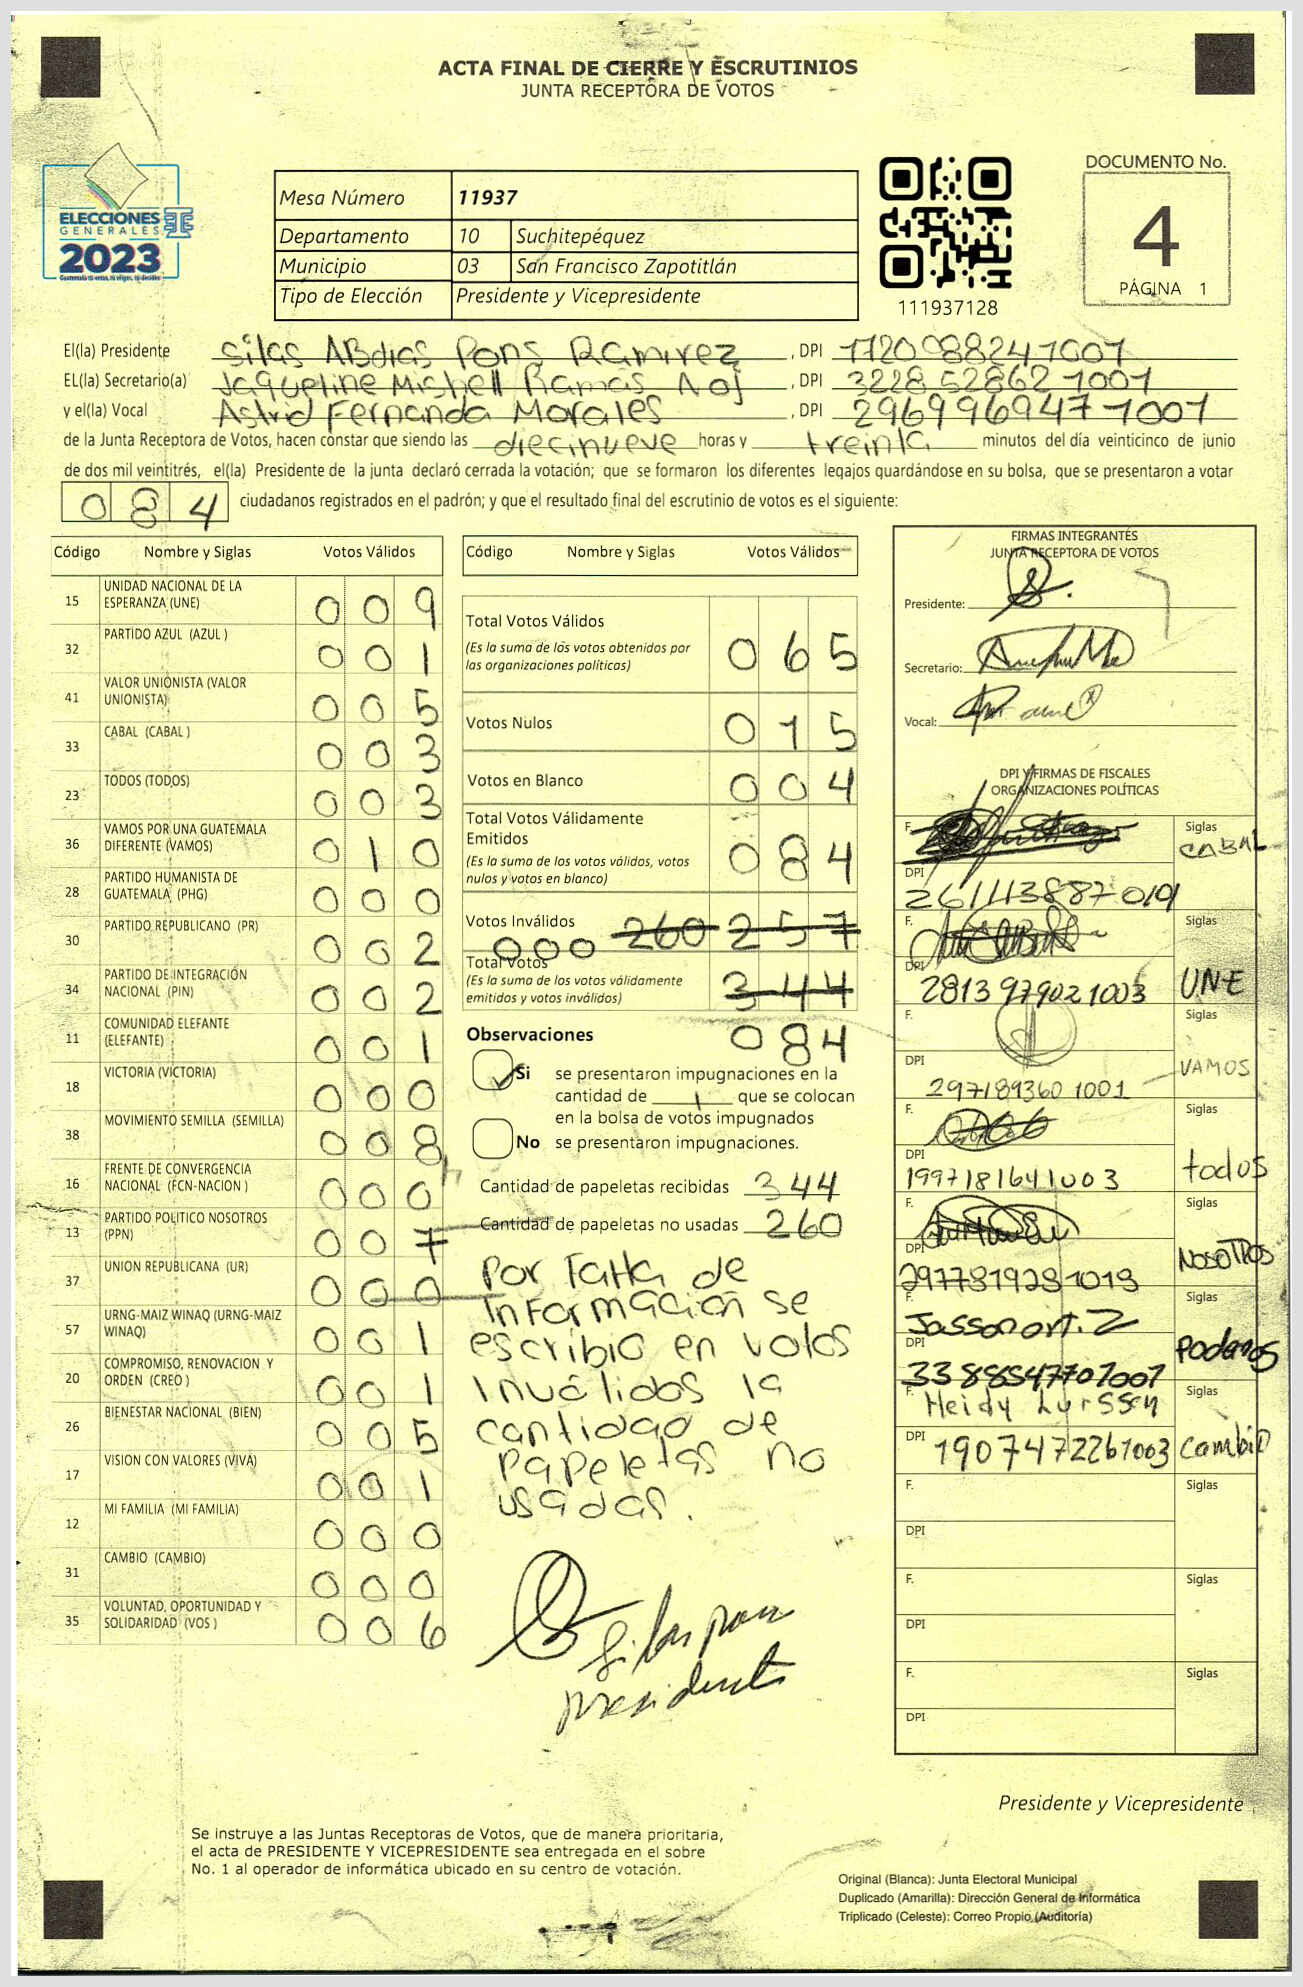 ACTA FINAL DE CIERRE Y ESCRUTINIOS
JUNTA RECEPTORA DE VOTOS
DOCUMENTO No.
4
PÁGINA 1
ELECCIONES
GENERALES
2023
Mesa Número 11937
Departamento 10 Suchitepéquez
Municipio 03 San Francisco Zapotitlán
Tipo de Elección Presidente y Vicepresidente
111937128
El(la) Presidente Silas ABdias Pons Ramirez, DPI 1720988241001
EL(la) Secretario(a) Jaqueline Mishell Ramas Noj, DPI 3228528621001
y el(la) Vocal Astrid Fernanda Morales, DPI 2969969471001
de la Junta Receptora de Votos, hacen constar que siendo las diecinueve horas y treinta minutos del día veinticinco de junio
de dos mil veintitrés, el(la) Presidente de la junta declaró cerrada la votación; que se formaron los diferentes legajos guardándose en su bolsa, que se presentaron a votar
084 ciudadanos registrados en el padrón; y que el resultado final del escrutinio de votos es el siguiente:
Código Nombre y Siglas Votos Válidos
15 UNIDAD NACIONAL DE LA ESPERANZA (UNE) 009
32 PARTIDO AZUL (AZUL ) 001
41 VALOR UNIONISTA (VALOR UNIONISTA) 005
33 CABAL (CABAL ) 003
23 TODOS (TODOS) 003
36 VAMOS POR UNA GUATEMALA DIFERENTE (VAMOS) 010
28 PARTIDO HUMANISTA DE GUATEMALA (PHG) 000
30 PARTIDO REPUBLICANO (PR) 002
34 PARTIDO DE INTEGRACIÓN NACIONAL (PIN) 002
11 COMUNIDAD ELEFANTE (ELEFANTE) 001
18 VICTORIA (VICTORIA) 000
38 MOVIMIENTO SEMILLA (SEMILLA) 008
16 FRENTE DE CONVERGENCIA NACIONAL (FCN-NACION ) 000
13 PARTIDO POLITICO NOSOTROS (PPN) 007
37 UNION REPUBLICANA (UR) 000
57 URNG-MAIZ WINAQ (URNG-MAIZ WINAQ) 001
20 COMPROMISO, RENOVACION Y ORDEN (CREO ) 001
26 BIENESTAR NACIONAL (BIEN) 005
17 VISION CON VALORES (VIVA) 001
12 MI FAMILIA (MI FAMILIA) 000
31 CAMBIO (CAMBIO) 000
35 VOLUNTAD, OPORTUNIDAD Y SOLIDARIDAD (VOS ) 006
Código Nombre y Siglas Votos Válidos
Total Votos Válidos 065
(Es la suma de los votos obtenidos por
las organizaciones políticas)
Votos Nulos 015
Votos en Blanco 004
Total Votos Válidamente
Emitidos 084
(Es la suma de los votos válidos, votos
nulos y votos en blanco)
Votos Inválidos 260 257
000
Total Votos
(Es la suma de los votos válidamente
emitidos y votos inválidos) 344
084
Observaciones
Si se presentaron impugnaciones en la
cantidad de 1 que se colocan
en la bolsa de votos impugnados
No se presentaron impugnaciones.
Cantidad de papeletas recibidas 344
Cantidad de papeletas no usadas 260
Por Falta de
informacion se
escribio en votos
Inválidos la
cantidad de
papeletas no
usadas.
Silas pons
presidente
FIRMAS INTEGRANTES
JUNTA RECEPTORA DE VOTOS
Presidente:
Secretario:
Vocal:
DPI Y FIRMAS DE FISCALES
ORGANIZACIONES POLÍTICAS
F. Siglas CABAL
DPI
F. Siglas UNE
DPI 2813979021003
F. Siglas VAMOS
DPI 2971893601001
F. Siglas todos
DPI 1997181641003
F. Siglas NOSOTROS
DPI 2977819281013
F. Jasson ort.z Siglas Podemos
DPI 3388547701001
F. Heidy Lurssen Siglas cambio
DPI 1907472261003
F. Siglas
DPI
F. Siglas
DPI
F. Siglas
DPI
Presidente y Vicepresidente
Se instruye a las Juntas Receptoras de Votos, que de manera prioritaria,
el acta de PRESIDENTE Y VICEPRESIDENTE sea entregada en el sobre
No. 1 al operador de informática ubicado en su centro de votación.
Original (Blanca): Junta Electoral Municipal
Duplicado (Amarilla): Dirección General de Informática
Triplicado (Celeste): Correo Propio (Auditoría)